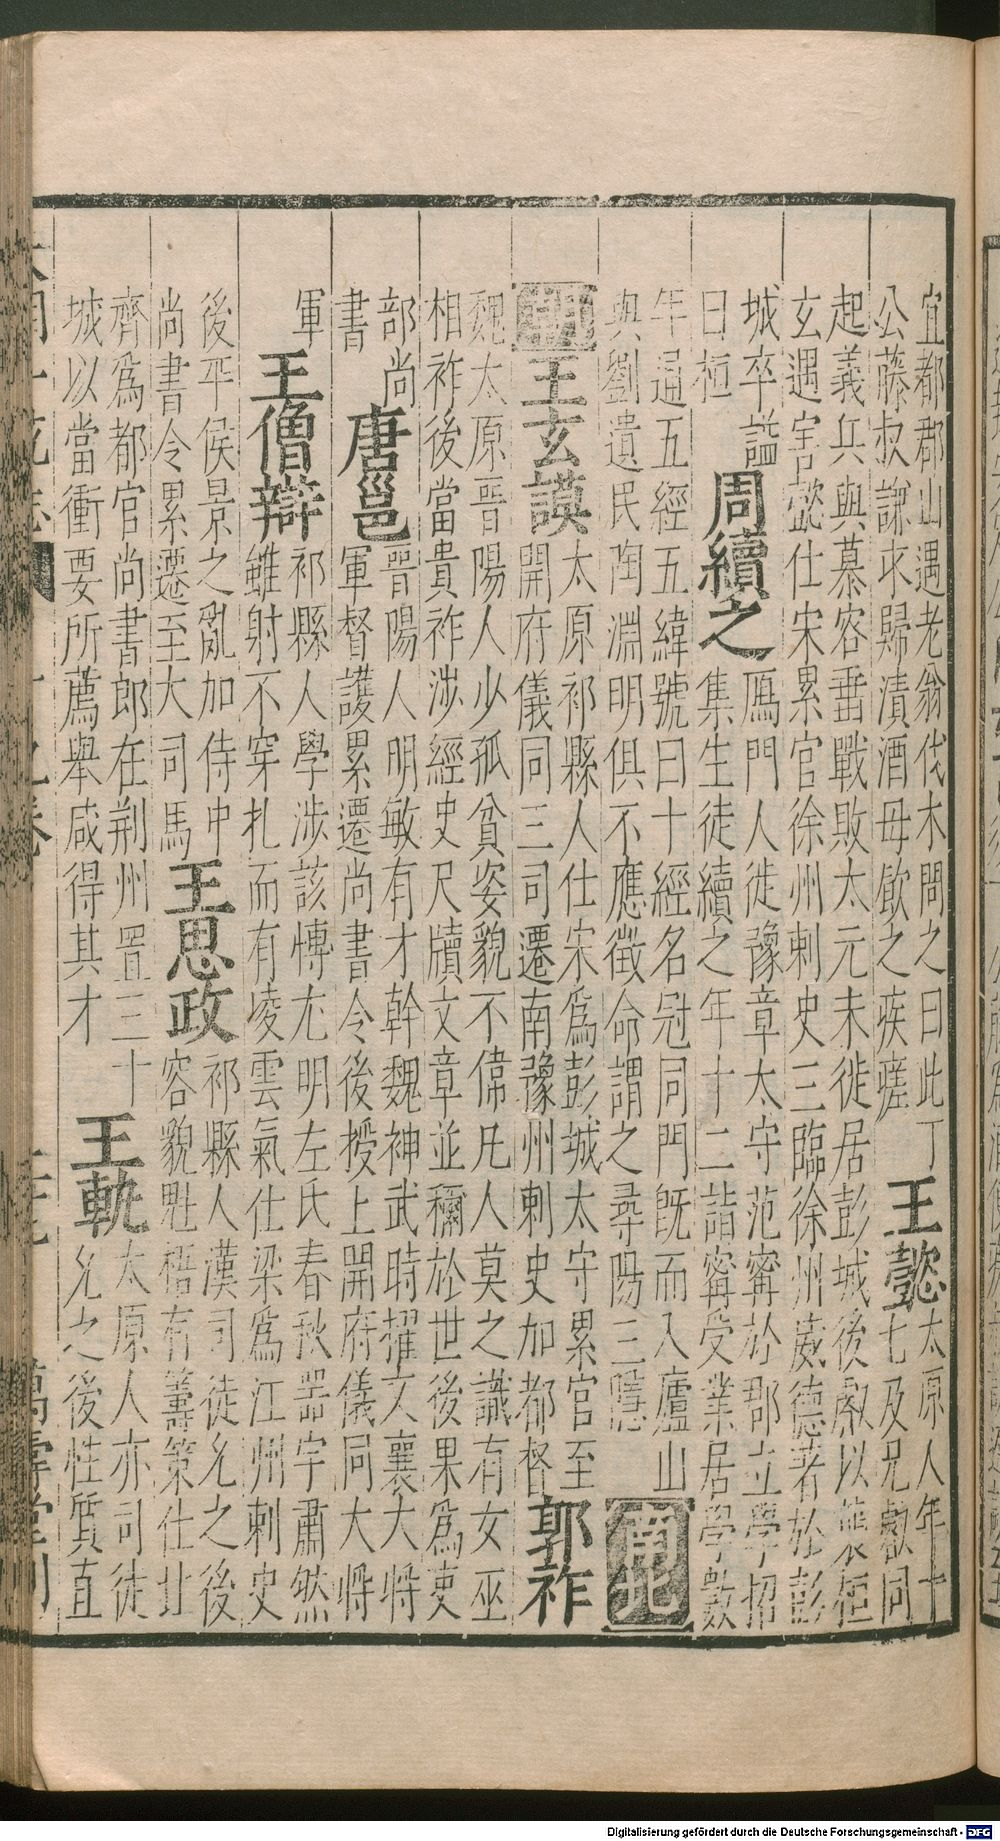 宜都郡山遇老翁伐木問之曰此丁
公藤求歸漬酒毋飲之疾瘥
王懿
太原人年十
七及兄叡同
起義兵與慕容垂戰敗太元末徙居彭城後叡以襲桓
玄遇害懿仕宋累官徐州刺史三臨徐州威德著於彭
城卒諡
曰桓
周續之
鴈門人徙豫章太守范甯於郡立學招
集生徒續之年十二詣甯受業居學數
年通五經五緯號曰十經名冠同門旣而入廬山
與劉遺民陶淵明俱不應徵命謂之尋陽三隱
南北
朝
王玄謨
太原祁縣人仕宋爲彭城太守累官至
開府儀同三司遷南豫州刺史加都督
郭祚
魏太原晋陽人少孤貧姿貌不偉凡人莫之識有女巫
相祚後當貴祚涉經史尺牘文章並稱於世後果爲吏
部尚
書
唐邕
晋陽人明敏有才幹魏神武時擢文襄大將
軍督護累遷尚書令後授上開府儀同大將
軍
王僧辯
祁縣人學涉該博尤明左氏春秋器宇肅然
雖射不穿札而有凌雲氣仕梁爲江州刺史
後平侯景之亂加侍中
尚書令累遷至大司馬
王思政
祁縣人漢司徒允之後
容貌魁梧有籌策仕北
齊爲都官尚書郎在荆州置三十
城以當衝要所薦舉咸得其才
王軌
太原人亦司徒
允之後性質直
萬壽堂刊
Digitalisierung gefördert durch die Deutsche Forschungsgemeinschaft - DFG